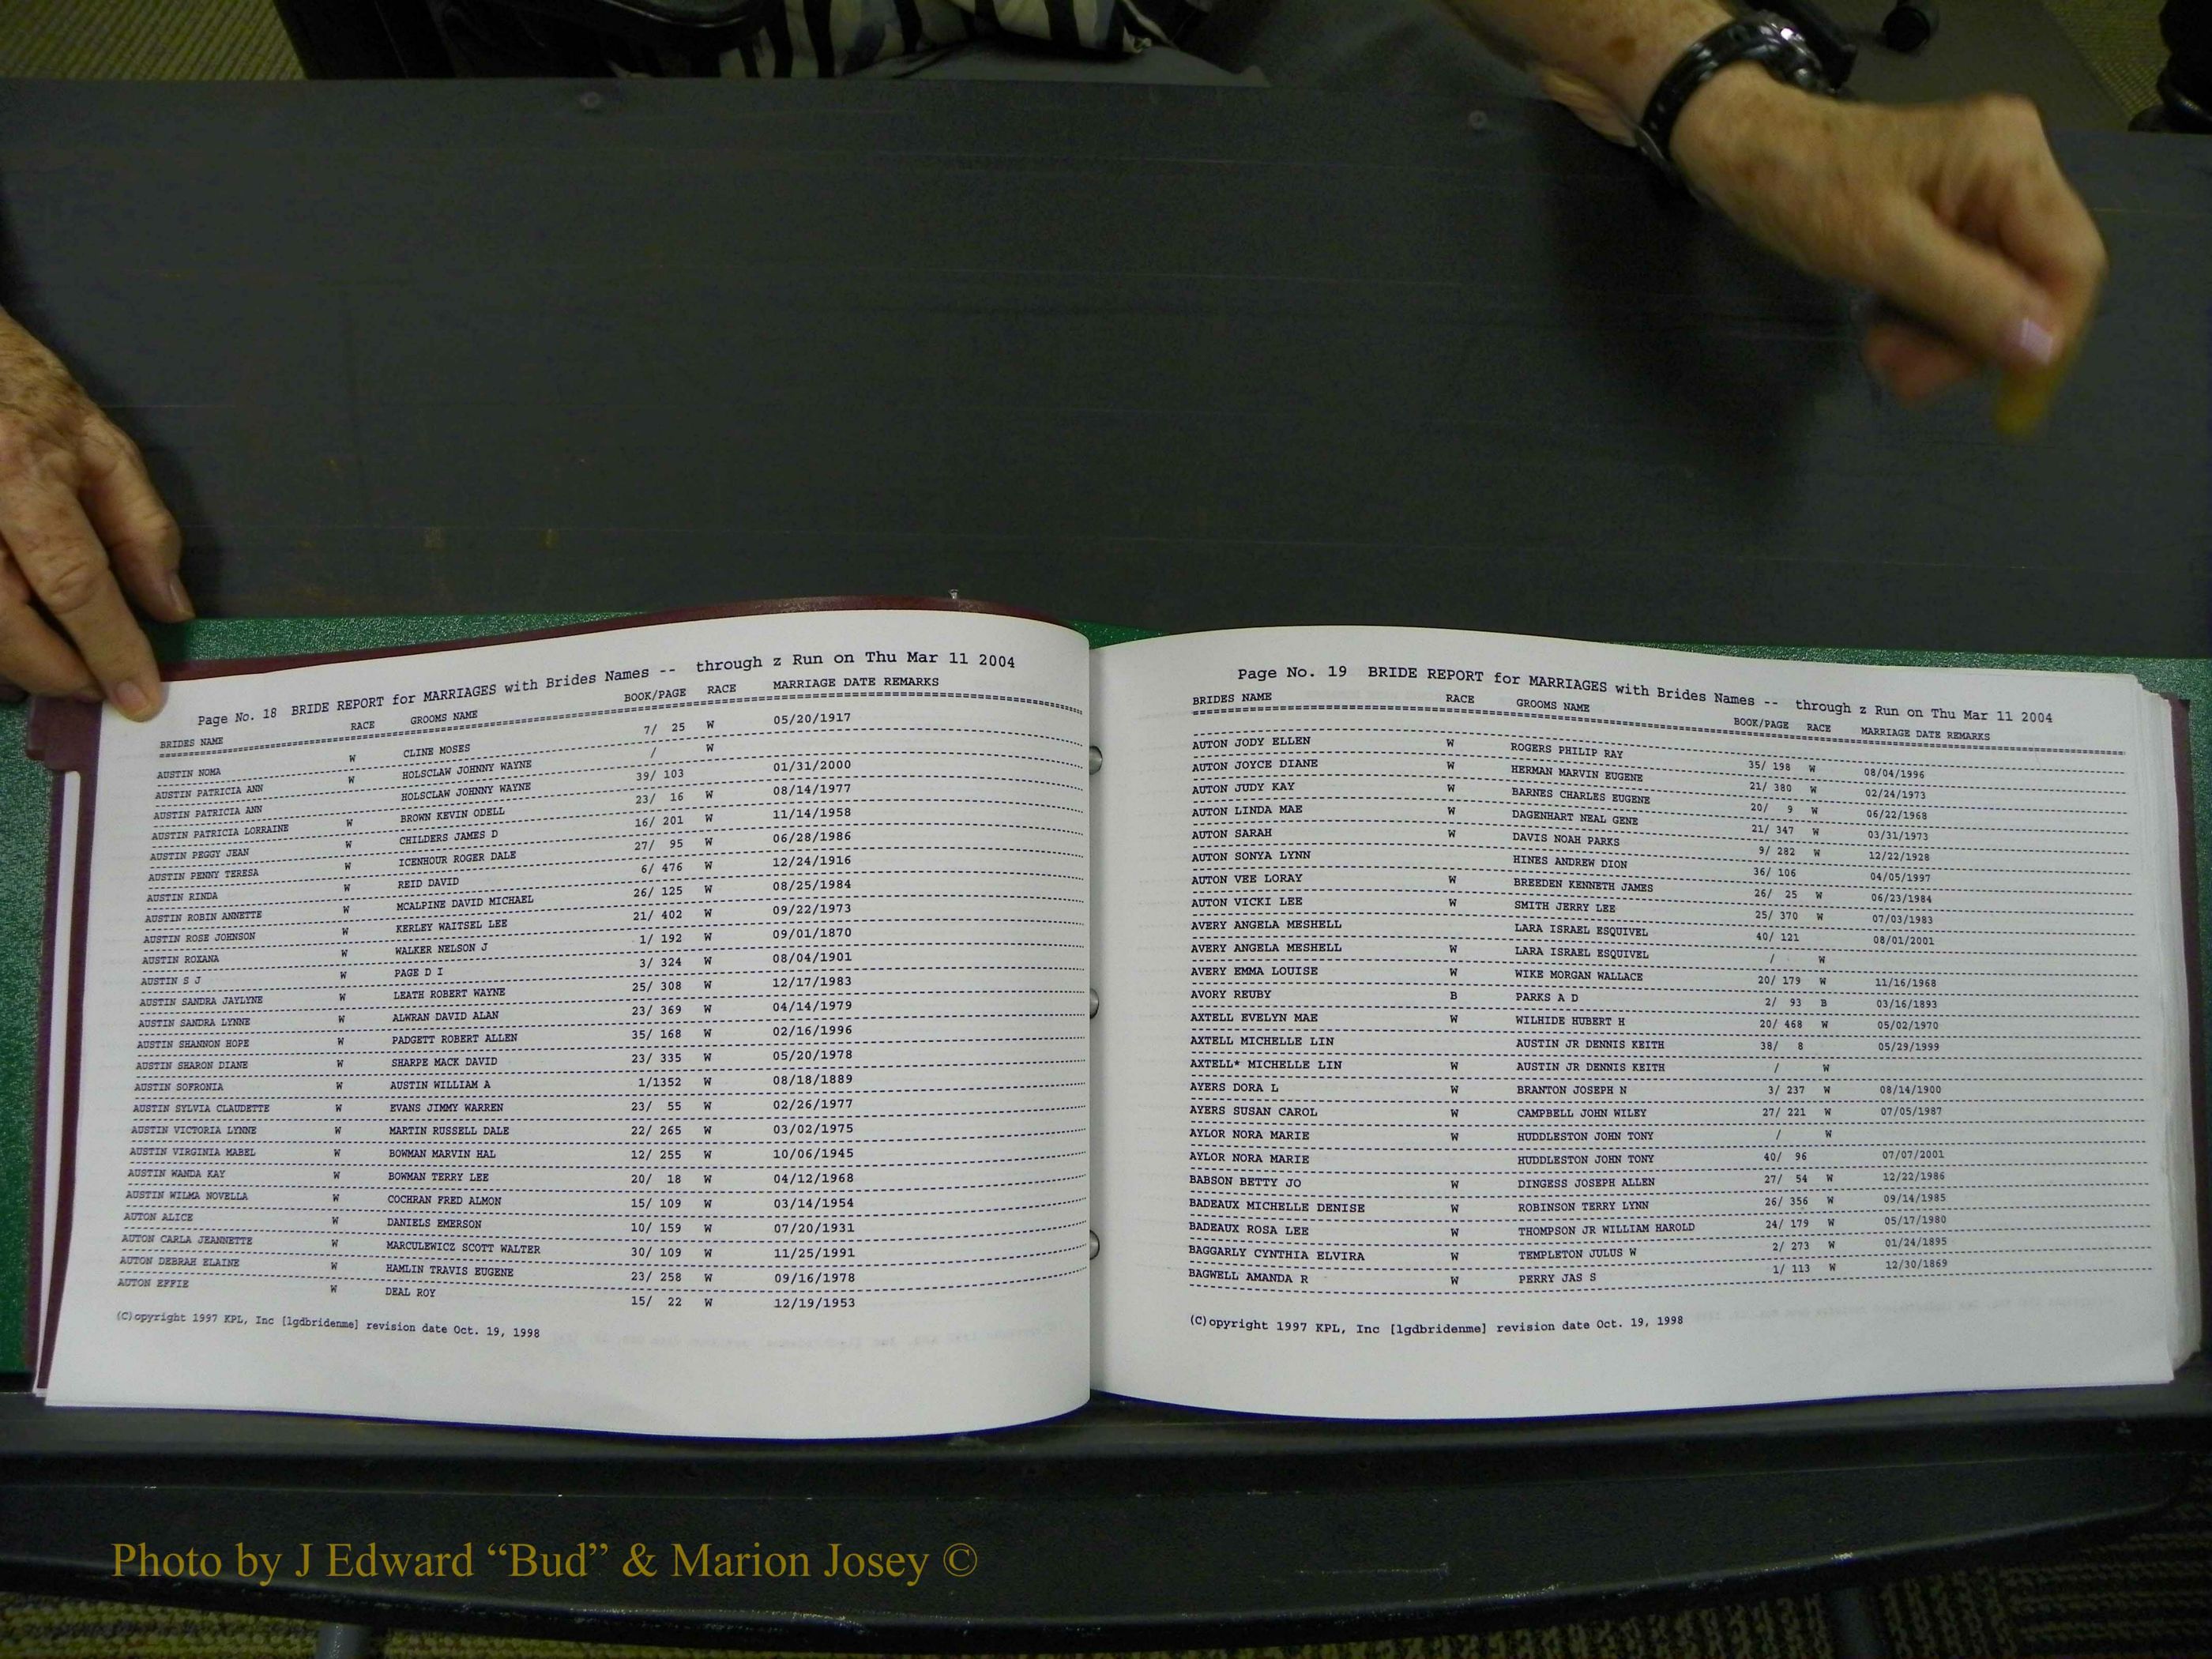 Page No. 18 BRIDE REPORT for MARRIAGES with Brides Names -- through z Run on Thu Mar 11 2004
BRIDES NAME RACE GROOMS NAME BOOK/PAGE RACE MARRIAGE DATE REMARKS
AUSTIN NOMA W CLINE MOSES 7/ 25 W 05/20/1917
AUSTIN PATRICIA ANN W HOLSCLAW JOHNNY WAYNE / W
AUSTIN PATRICIA ANN HOLSCLAW JOHNNY WAYNE 39/ 103 01/31/2000
AUSTIN PATRICIA LORRAINE W BROWN KEVIN ODELL 23/ 16 W 08/14/1977
AUSTIN PEGGY JEAN W CHILDERS JAMES D 16/ 201 W 11/14/1958
AUSTIN PENNY TERESA W ICENHOUR ROGER DALE 27/ 95 W 06/28/1986
AUSTIN RINDA W REID DAVID 6/ 476 W 12/24/1916
AUSTIN ROBIN ANNETTE W MCALPINE DAVID MICHAEL 26/ 125 W 08/25/1984
AUSTIN ROSE JOHNSON W KERLEY WAITSEL LEE 21/ 402 W 09/22/1973
AUSTIN ROXANA W WALKER NELSON J 1/ 192 W 09/01/1870
AUSTIN S J W PAGE D I 3/ 324 W 08/04/1901
AUSTIN SANDRA JAYLYNE W LEATH ROBERT WAYNE 25/ 308 W 12/17/1983
AUSTIN SANDRA LYNNE W ALWRAN DAVID ALAN 23/ 369 W 04/14/1979
AUSTIN SHANNON HOPE W PADGETT ROBERT ALLEN 35/ 168 W 02/16/1996
AUSTIN SHARON DIANE W SHARPE MACK DAVID 23/ 335 W 05/20/1978
AUSTIN SOFRONIA W AUSTIN WILLIAM A 1/1352 W 08/18/1889
AUSTIN SYLVIA CLAUDETTE W EVANS JIMMY WARREN 23/ 55 W 02/26/1977
AUSTIN VICTORIA LYNNE W MARTIN RUSSELL DALE 22/ 265 W 03/02/1975
AUSTIN VIRGINIA MABEL W BOWMAN MARVIN HAL 12/ 255 W 10/06/1945
AUSTIN WANDA KAY W BOWMAN TERRY LEE 20/ 18 W 04/12/1968
AUSTIN WILMA NOVELLA W COCHRAN FRED ALMON 15/ 109 W 03/14/1954
AUTON ALICE W DANIELS EMERSON 10/ 159 W 07/20/1931
AUTON CARLA JEANNETTE W MARCULEWICZ SCOTT WALTER 30/ 109 W 11/25/1991
AUTON DEBRAH ELAINE W HAMLIN TRAVIS EUGENE 23/ 258 W 09/16/1978
AUTON EFFIE W DEAL ROY 15/ 22 W 12/19/1953
(C)opyright 1997 KPL, Inc [lgdbridenme] revision date Oct. 19, 1998
Page No. 19 BRIDE REPORT for MARRIAGES with Brides Names -- through z Run on Thu Mar 11 2004
BRIDES NAME RACE GROOMS NAME BOOK/PAGE RACE MARRIAGE DATE REMARKS
AUTON JODY ELLEN W ROGERS PHILIP RAY 35/ 198 W 08/04/1996
AUTON JOYCE DIANE W HERMAN MARVIN EUGENE 21/ 380 W 02/24/1973
AUTON JUDY KAY W BARNES CHARLES EUGENE 20/ 9 W 06/22/1968
AUTON LINDA MAE W DAGENHART NEAL GENE 21/ 347 W 03/31/1973
AUTON SARAH W DAVIS NOAH PARKS 9/ 282 W 12/22/1928
AUTON SONYA LYNN HINES ANDREW DION 36/ 106 04/05/1997
AUTON VEE LORAY W BREEDEN KENNETH JAMES 26/ 25 W 06/23/1984
AUTON VICKI LEE W SMITH JERRY LEE 25/ 370 W 07/03/1983
AVERY ANGELA MESHELL LARA ISRAEL ESQUIVEL 40/ 121 08/01/2001
AVERY ANGELA MESHELL W LARA ISRAEL ESQUIVEL / W
AVERY EMMA LOUISE W WIKE MORGAN WALLACE 20/ 179 W 11/16/1968
AVORY REUBY B PARKS A D 2/ 93 B 03/16/1893
AXTELL EVELYN MAE W WILHIDE HUBERT H 20/ 468 W 05/02/1970
AXTELL MICHELLE LIN AUSTIN JR DENNIS KEITH 38/ 8 05/29/1999
AXTELL* MICHELLE LIN W AUSTIN JR DENNIS KEITH / W
AYERS DORA L W BRANTON JOSEPH N 3/ 237 W 08/14/1900
AYERS SUSAN CAROL W CAMPBELL JOHN WILEY 27/ 221 W 07/05/1987
AYLOR NORA MARIE W HUDDLESTON JOHN TONY / W
AYLOR NORA MARIE HUDDLESTON JOHN TONY 40/ 96 07/07/2001
BABSON BETTY JO W DINGESS JOSEPH ALLEN 27/ 54 W 12/22/1986
BADEAUX MICHELLE DENISE W ROBINSON TERRY LYNN 26/ 356 W 09/14/1985
BADEAUX ROSA LEE W THOMPSON JR WILLIAM HAROLD 24/ 179 W 05/17/1980
BAGGARLY CYNTHIA ELVIRA W TEMPLETON JULUS W 2/ 273 W 01/24/1895
BAGWELL AMANDA R W PERRY JAS S 1/ 113 W 12/30/1869
(C)opyright 1997 KPL, Inc [lgdbridenme] revision date Oct. 19, 1998
Photo by J Edward “Bud” & Marion Josey ©